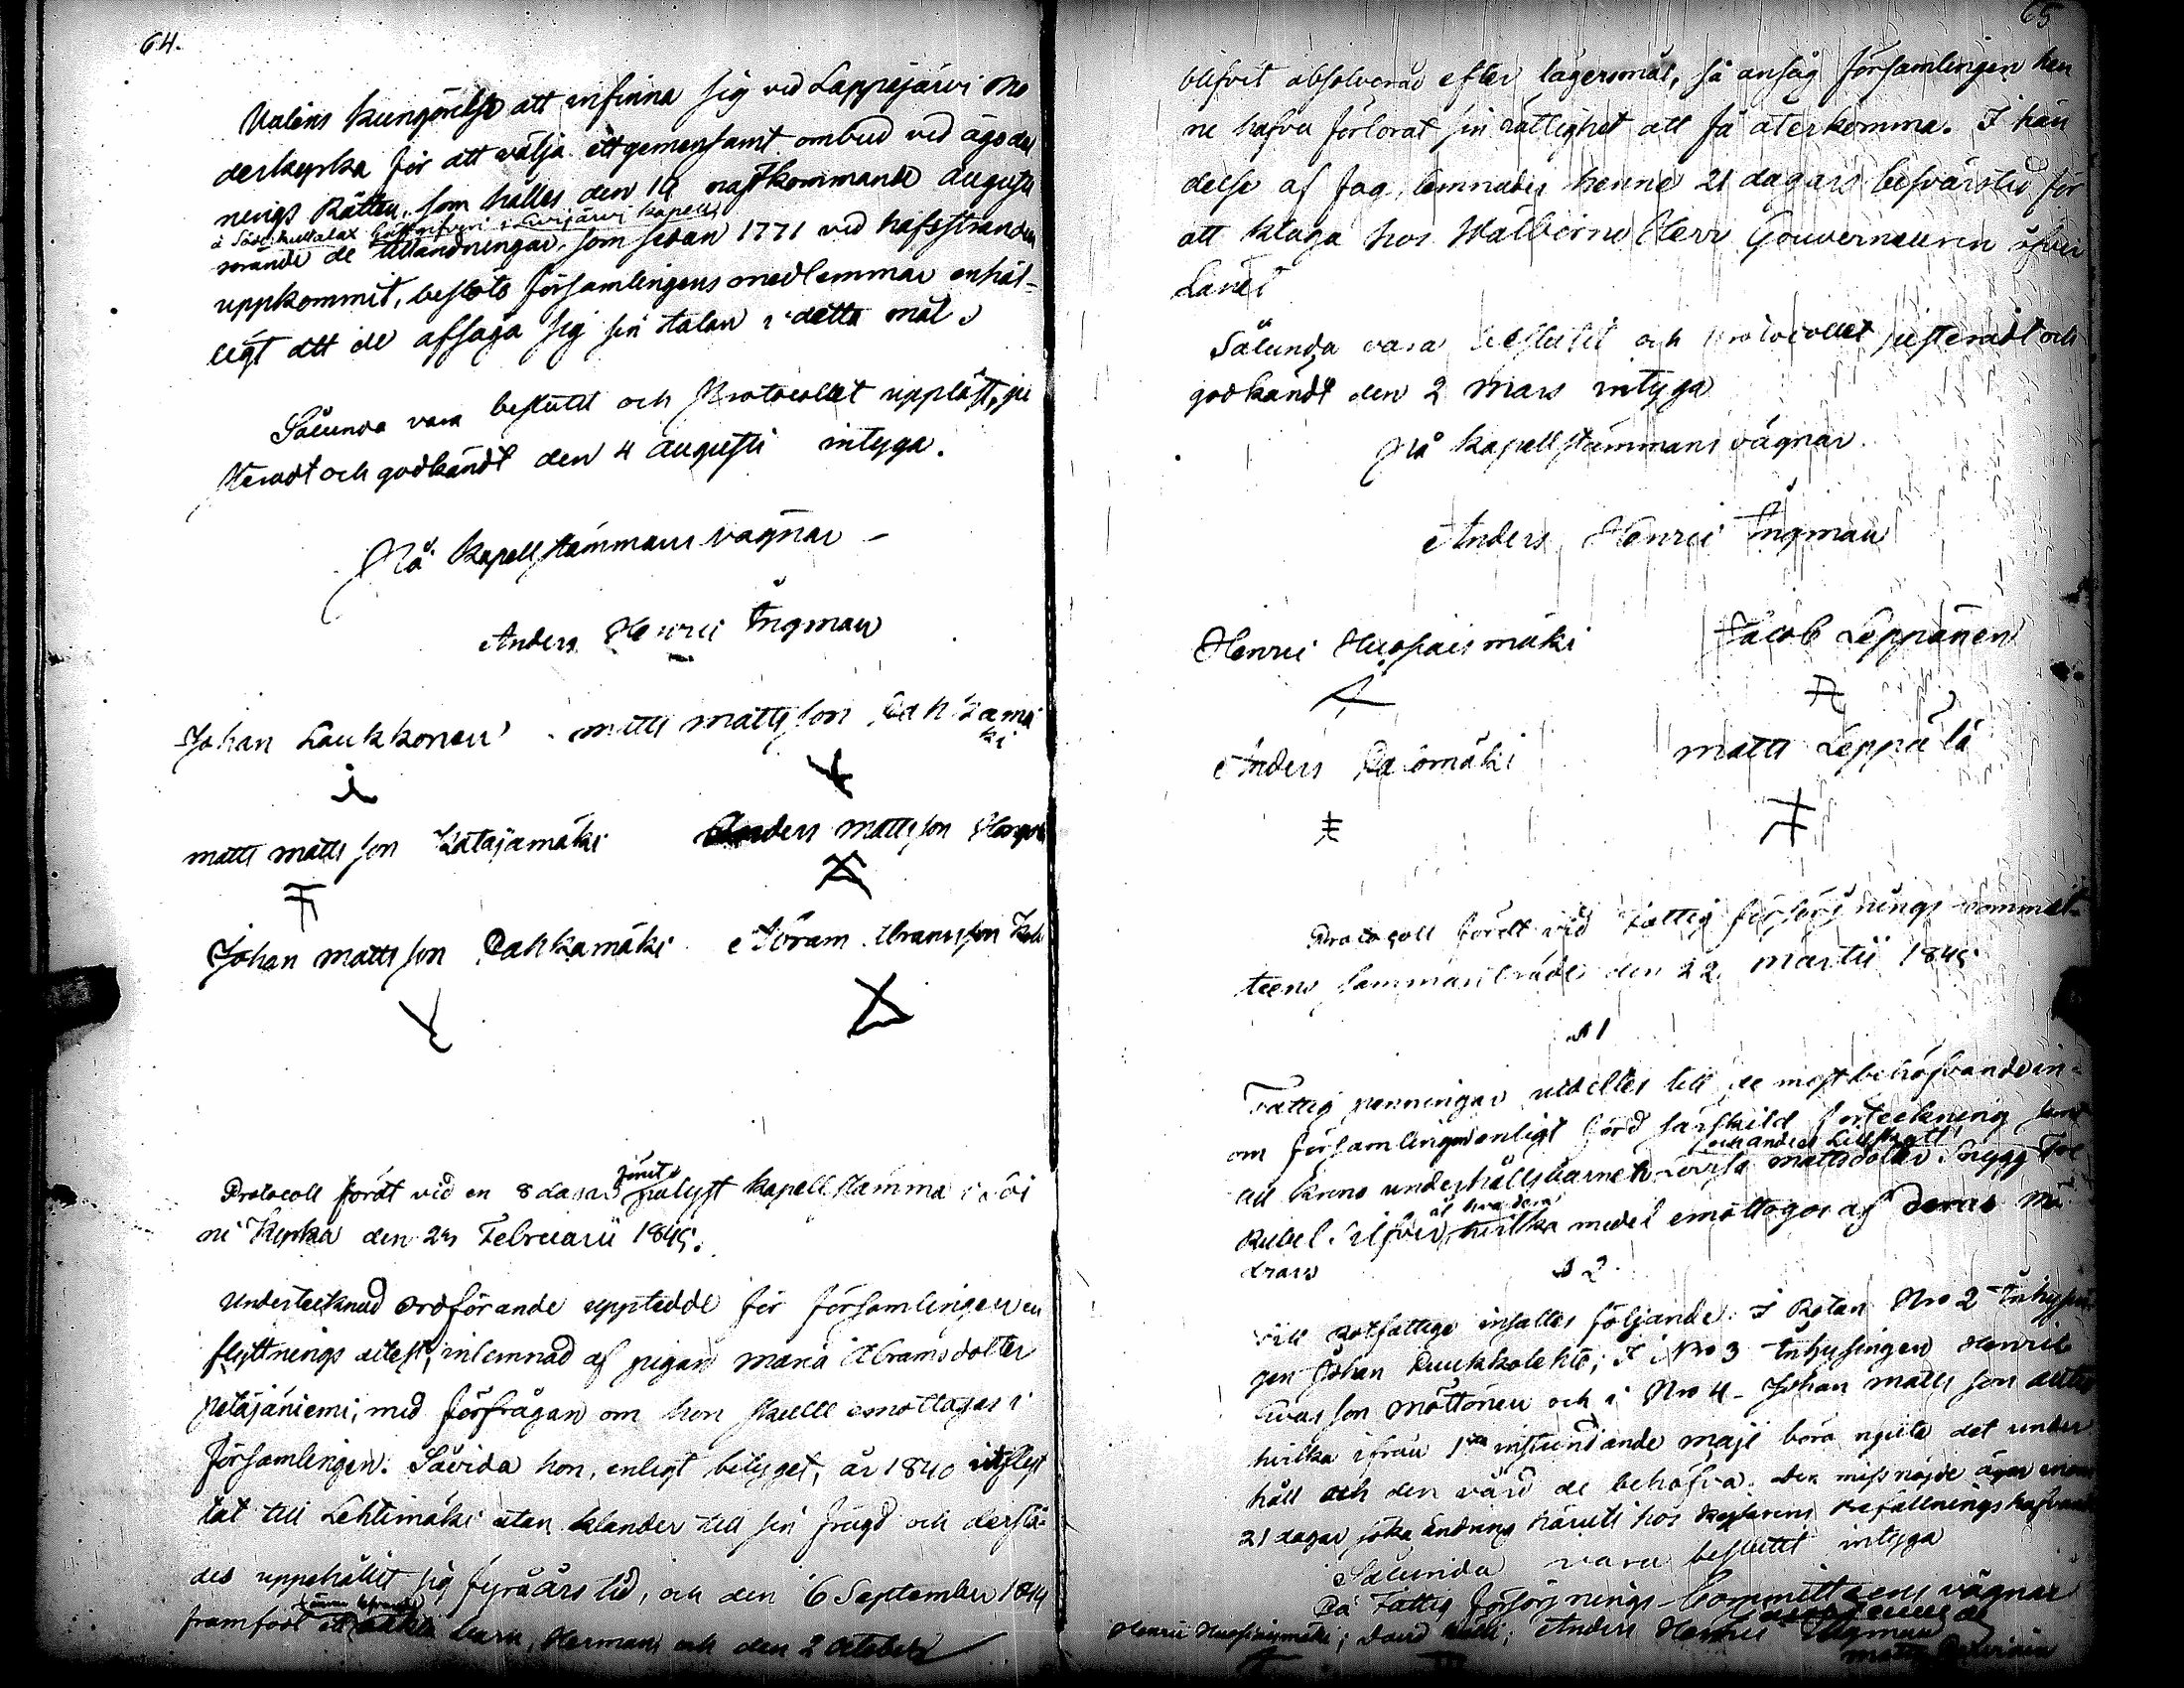 64.
Malens kungörelse att infinna sig vid Lappejärvi mo
derkyrka för att välja ett gemensamt ombud vid ägodel
nings Rätten, som hålles den 19 nästkommande Augusti
å Gästgifveri i Evijärvi kapell
rörande de tillandningar, som sedan 1771 vid hafsstranden
uppkommit, beslöts församlingens medlemmar enhäl-
ligt att de afsäga sig sin talan i detta mål.
Sålunda vara beslutit och Protocollet uppläst, ju
steradt och godkändt den 4 Augusti intyga.
På Kapellstämmans vägnar
Anders Henric Ingman
Johan Laukkonen matts mattsson Pahkamä
ki
matts mattsson Katajamäki Anders mattsson
Johan mattsson Pahkamäki Abram Abramsson
Protocoll fördt vid en 8 dagar förut
pålyst kapellstämma i Soi
ni Kyrka den 23 Februarii 1845.
Undertecknad Ordförande upptedde för församlingen en
flyttnings attest, inlemnad af pigan Maria Abramsdotter
Petäjäniemi, med förfrågan om hon skulle emottagas i
församlingen. Såvida hon, enligt betyget, år 1840 utflyt
tat till Lehtimäki utan klander till sin frägd och derstä-
des uppehållit sig fyra års tid, och den 6 September 1844
framfödt ett oäkta barn, Herman och den 2 October
65
blifvit absolverad efter lägersmål, så ansåg församlingen hen
ne hafva förlorat sin rättighet att få återkomma. I hän
delse af Jag, lemnades henne 21 dagars besvärstid för
att klaga hos Wälborne Herr Gouverneuren öfver
Länet
Sålunda vara beslutit och Protocollet justeradt och
godkändt den 2 Mars intyga
På kapellstämmans vägnar.
Anders Henric Ingman
Henric Huopaismäki Jacob Leppänen
Anders Palomäki matts Leppälä
Protocoll fördt vid Fattig försörjnings-committ-
teens sammanträde den 22 Martii 1845.
§ 1
Fattig penningar utdeltes till de mest behöfvande in-
om församlingen enligt förd särskild förteckning samt
och Anders
till krono underhållsbarnet Lovisa mattsdotter Snygg
åt hvardera
Rubel Silfver, hvilka medel emottogos af deras mö
drars
§ 2.
Till rotfattige insattes följande: I Rotan Nro 2 Inhysin
gen Johan Ruukkolehto; I Nro 3 Inhysingen Henric
Evasson Möttönen och i Nro 4 - Johan matts son
hvilka ifrån 1sta instundande maji böra njuta det under
håll och den vård de behöfva. Den missnöjde äger inom
21 dagar söka ändring häruti hos Kejserens Befallningshafvande
Sålunda vara beslutit intyga
På Fattig försörjnings-Committeens vägnar
Henric Huopaismäki; David; Anders Henric Ingman